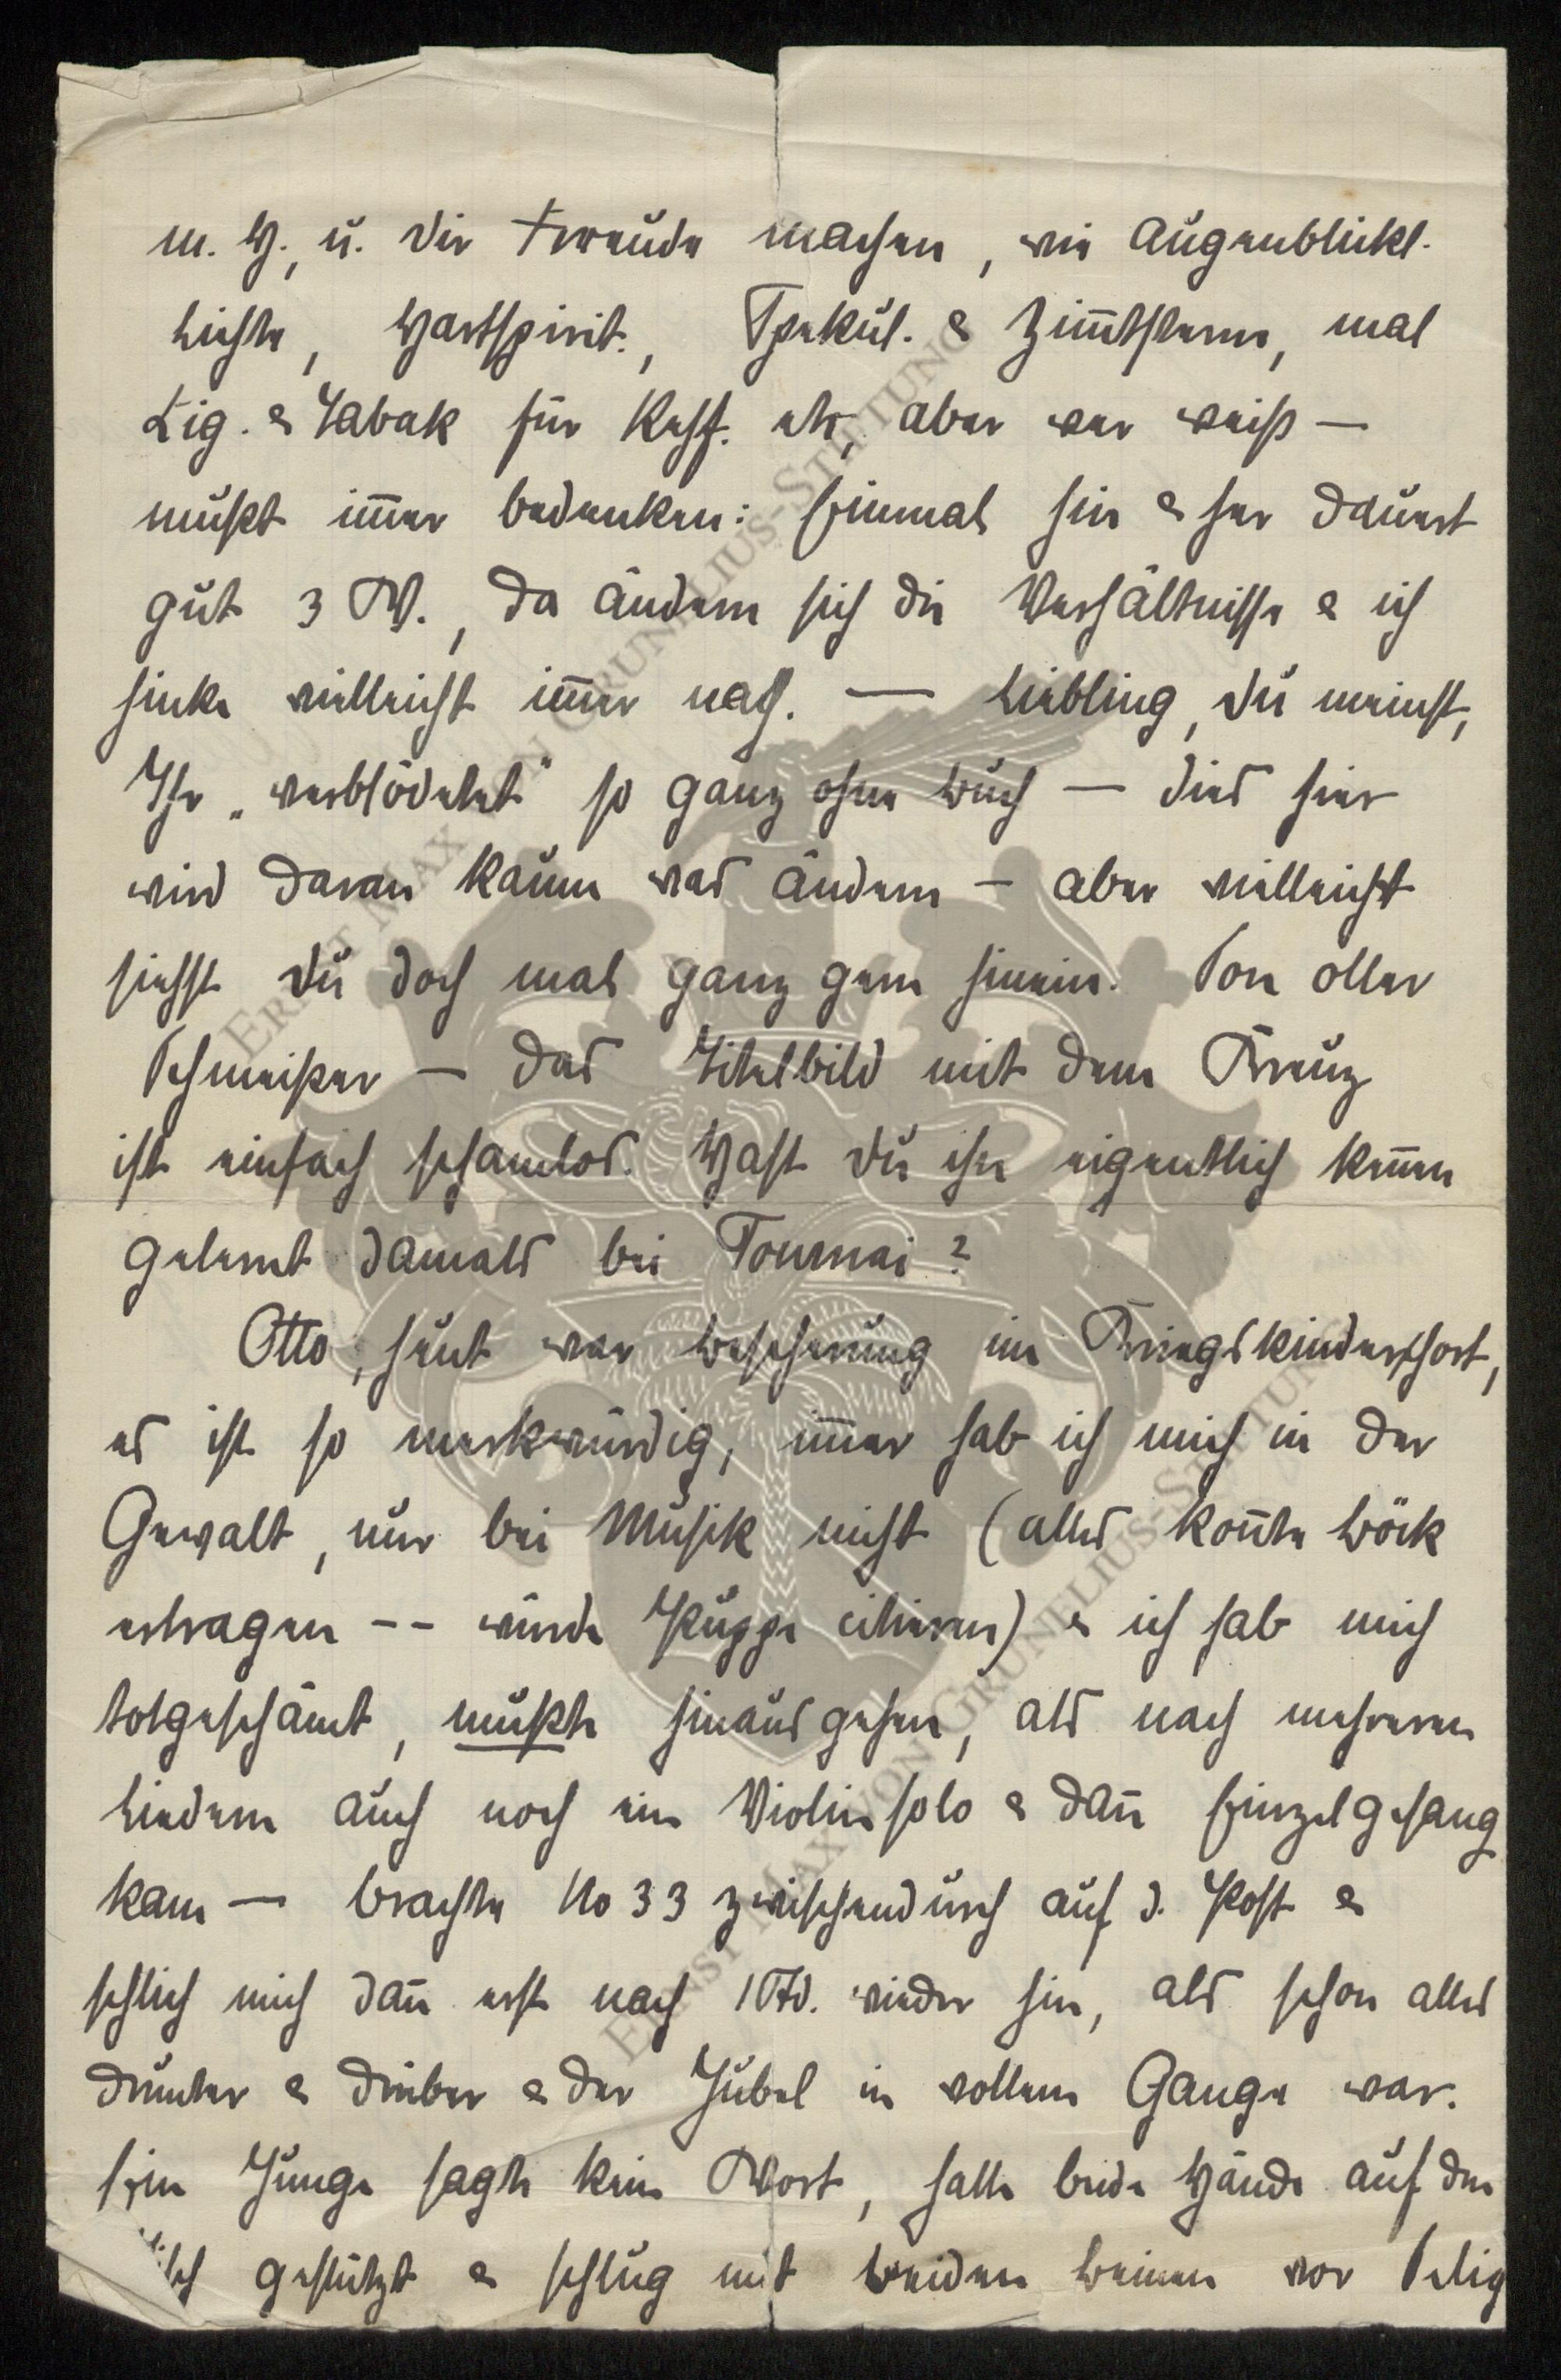 m. H., u. Dir Freude machen, wie augenblickl.
Lichte, Hartspirit., Spekul. & Zimtsterne, mal
Zig. & Tabak für Kass. etc, aber wer weiß —
mußt immer bedenken: Einmal hin & her dauert
gut 3 W., da ändern sich die Verhältnisse & ich
hinke vielleicht immer nach. — Liebling, Du meinst,
Ihr „verblödetet" so ganz ohne Buch — dies hier
wird daran kaum was ändern — aber vielleicht
siehst Du doch mal ganz gern hinein. Son oller
Schmeißer — das Titelbild mit dem Kreuz
ist einfach schamlos. Hast Du ihn eigentlich kennen
gelernt damals bei Tournai?
Otto, heut war Bescherung im Kriegskinderhort,
es ist so merkwürdig, immer hab ich mich in der
Gewalt, nur bei Musik nicht (alles konnte Böck
ertragen -- würde Puppe citieren) & ich hab mich
totgeschämt, mußte hinausgehen, als nach mehreren
Liedern auch noch ein Violinsolo & dann Einzelgesang
kam — brachte No 33 zwischendurch auf d. Post &
schlich mich dann erst nach 1 Std. wieder hin, als schon alles
drunter & drüber & der Jubel in vollem Gange war.
Ein Junge sagte kein Wort, hatte beide Hände auf den
Tisch gestützt & schlug mit beiden Beinen vor Selig
ERNST MAX VON GRUNELIUS-STIFTUNG
ERNST MAX VON GRUNELIUS-STIFTUNG